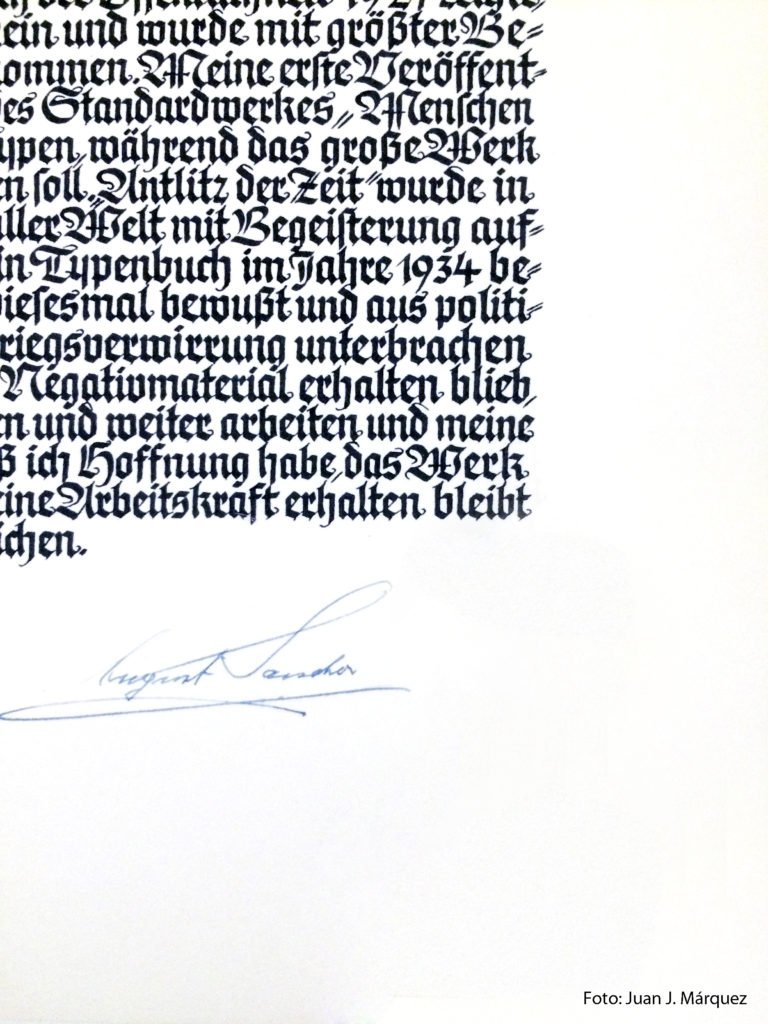 der Öffentlichkeit 1927 zeigte
ein und wurde mit größter Be=
ommen. Meine erste Veröffent=
es Standardwerkes „Menschen
ypen, während das große Werk
en soll. „Antlitz der Zeit“ wurde in
aller Welt mit Begeisterung auf=
in Typenbuch im Jahre 1934 be=
diesesmal bewußt und aus politi=
riegsverwirrung unterbrachen
Negativmaterial erhalten blieb,
en und weiter arbeiten und meine
ß ich Hoffnung habe, das Werk
eine Arbeitskraft erhalten bleibt
ichen.
August Sander
Foto: Juan J. Márquez